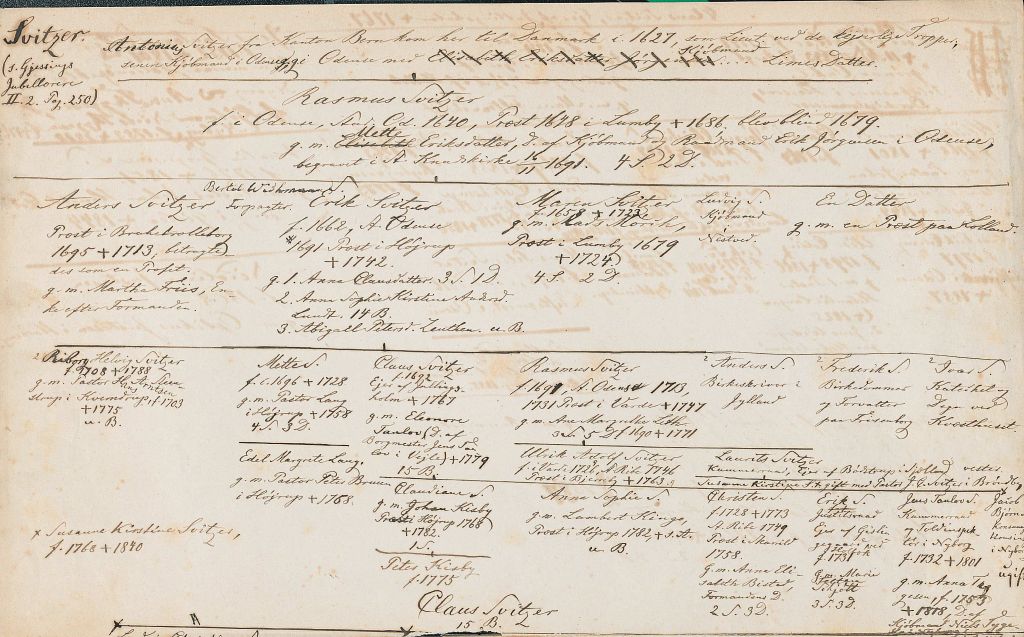 Svitzer.
(s. Gjessings
Jubellærere
II. 2. Pag. 250)
Antonius Svitzer fra Kanton Bern kom her til Danmark i 1627, som Lieut. ved de kejserlige Tropper,
senere Kjøbmand i Odense, g. i Odense med Kjøbmand Limes Datter.
Rasmus Svitzer
f. i Odense, Stud. Od. 1640, Provst 1648 i Lumby + 1686, blev blind 1679.
g. m. Mette Eriksdatter, D. af Kjøbmand og Raadmand Erik Jørgensen i Odense,
begravet i St Knudskirke 16/11 1691. 4 S. 2 D.
Anders Svitzer
Provst i Brahetrolleborg
1695 + 1713, betragte-
des som en Profet.
g. m. Martha Friis, En-
ke efter Formanden.
Bertel S.
Forpagter.
Erik Svitzer
f. 1662, A. Odense
1691 Provst i Höjrup
+ 1742.
g. 1. Anna Clausdatter. 3 S. 1 D.
2. Anne Sophie Kirstine Andersd.
Lundt. 14 B.
3. Abigael Petersd. Zeuthen. u. B.
Maren Svitzer
f. 1658 + 1723
g. m. Mads Morih,
Provst i Lumby 1679
+ 1724)
4 S. 2 D.
Ludvig S.
Kjöbmand
Nestved.
En Datter
g. m. en Præst paa Lolland.
2 Riborg Helvig Svitzer
f. 1708 + 1788
g. m. Pastor
strup i Kverndrup, f. 1703
+ 1775
u. B.
Mette S.
f. c. 1696 + 1728
g. m. Pastor Lang
i Höjrup + 1758
4 S. 3 D.
Edel Margrete Lang,
g. m. Pastor Peter Bruun
i Höjrup + 1768.
Claus Svitzer
f. 1692
Ejer af
holm + 1767
g. m. Eleonore
Taulov (D. af
Borgmester Jens Tau-
lov i Vejle) + 1779
15 B.
Claudiane S.
g. m. Johan Kisby
Provst i Höjrup 1768
+ 1782.
1 S.
Peter Kisby
f. 1775
Rasmus Svitzer
f. 1697 A. Odense 1713,
1731 Præst i Varde + 1747
g. m. Ane Margrethe Loth
3 S. 5 D. f. 1690 + 1771
Ulrik Adolf Svitzer
f. i Varde 1726, A. Ribe 1746
Præst i Bjernby + 1763.
Anna Sophie S.
g. m. Lambert Hinge,
Provst i Höjrup 1782, s. St.
u. B.
2 Anders S.
Birkeskriver i
Jylland
2 Frederik S.
Birkedommer
og Forvalter
paa Frisenborg
2 Ivar S.
Kateket og
Degn ved
Laurits Svitzer
Kammerraad, Ejer af Bödstrup i Sjælland vester.
Susanne Kirstine S. x gift med Pastor J. C. Svitzer i
Christen S.
f. 1728 + 1773
A. Ribe 1749
Præst i Skarild
1758.
g. m. Anna Eli-
sabeth Bistad,
Formandens D.
2 S. 3 D.
Erik S.
Justitsraad
Ejer af Gislin
gegaard ved
Holbæk
f. 1731
g. m. Marie
Schjött
3 S. 3 D.
Jens Taulov S.
Kammerraad
og Toldinspek-
tör i Nyborg
f. 1732 + 1801
g. m. Anna Tyg-
gesen, f. 1753
+ 1818, D. af
Kjöbmand Niels Tygge-
Jacob
Björn
Konsum
i Nybo
ugift
x Susanne Kirstine Svitzer,
f. 1768 + 1840
Claus Svitzer
15 B.